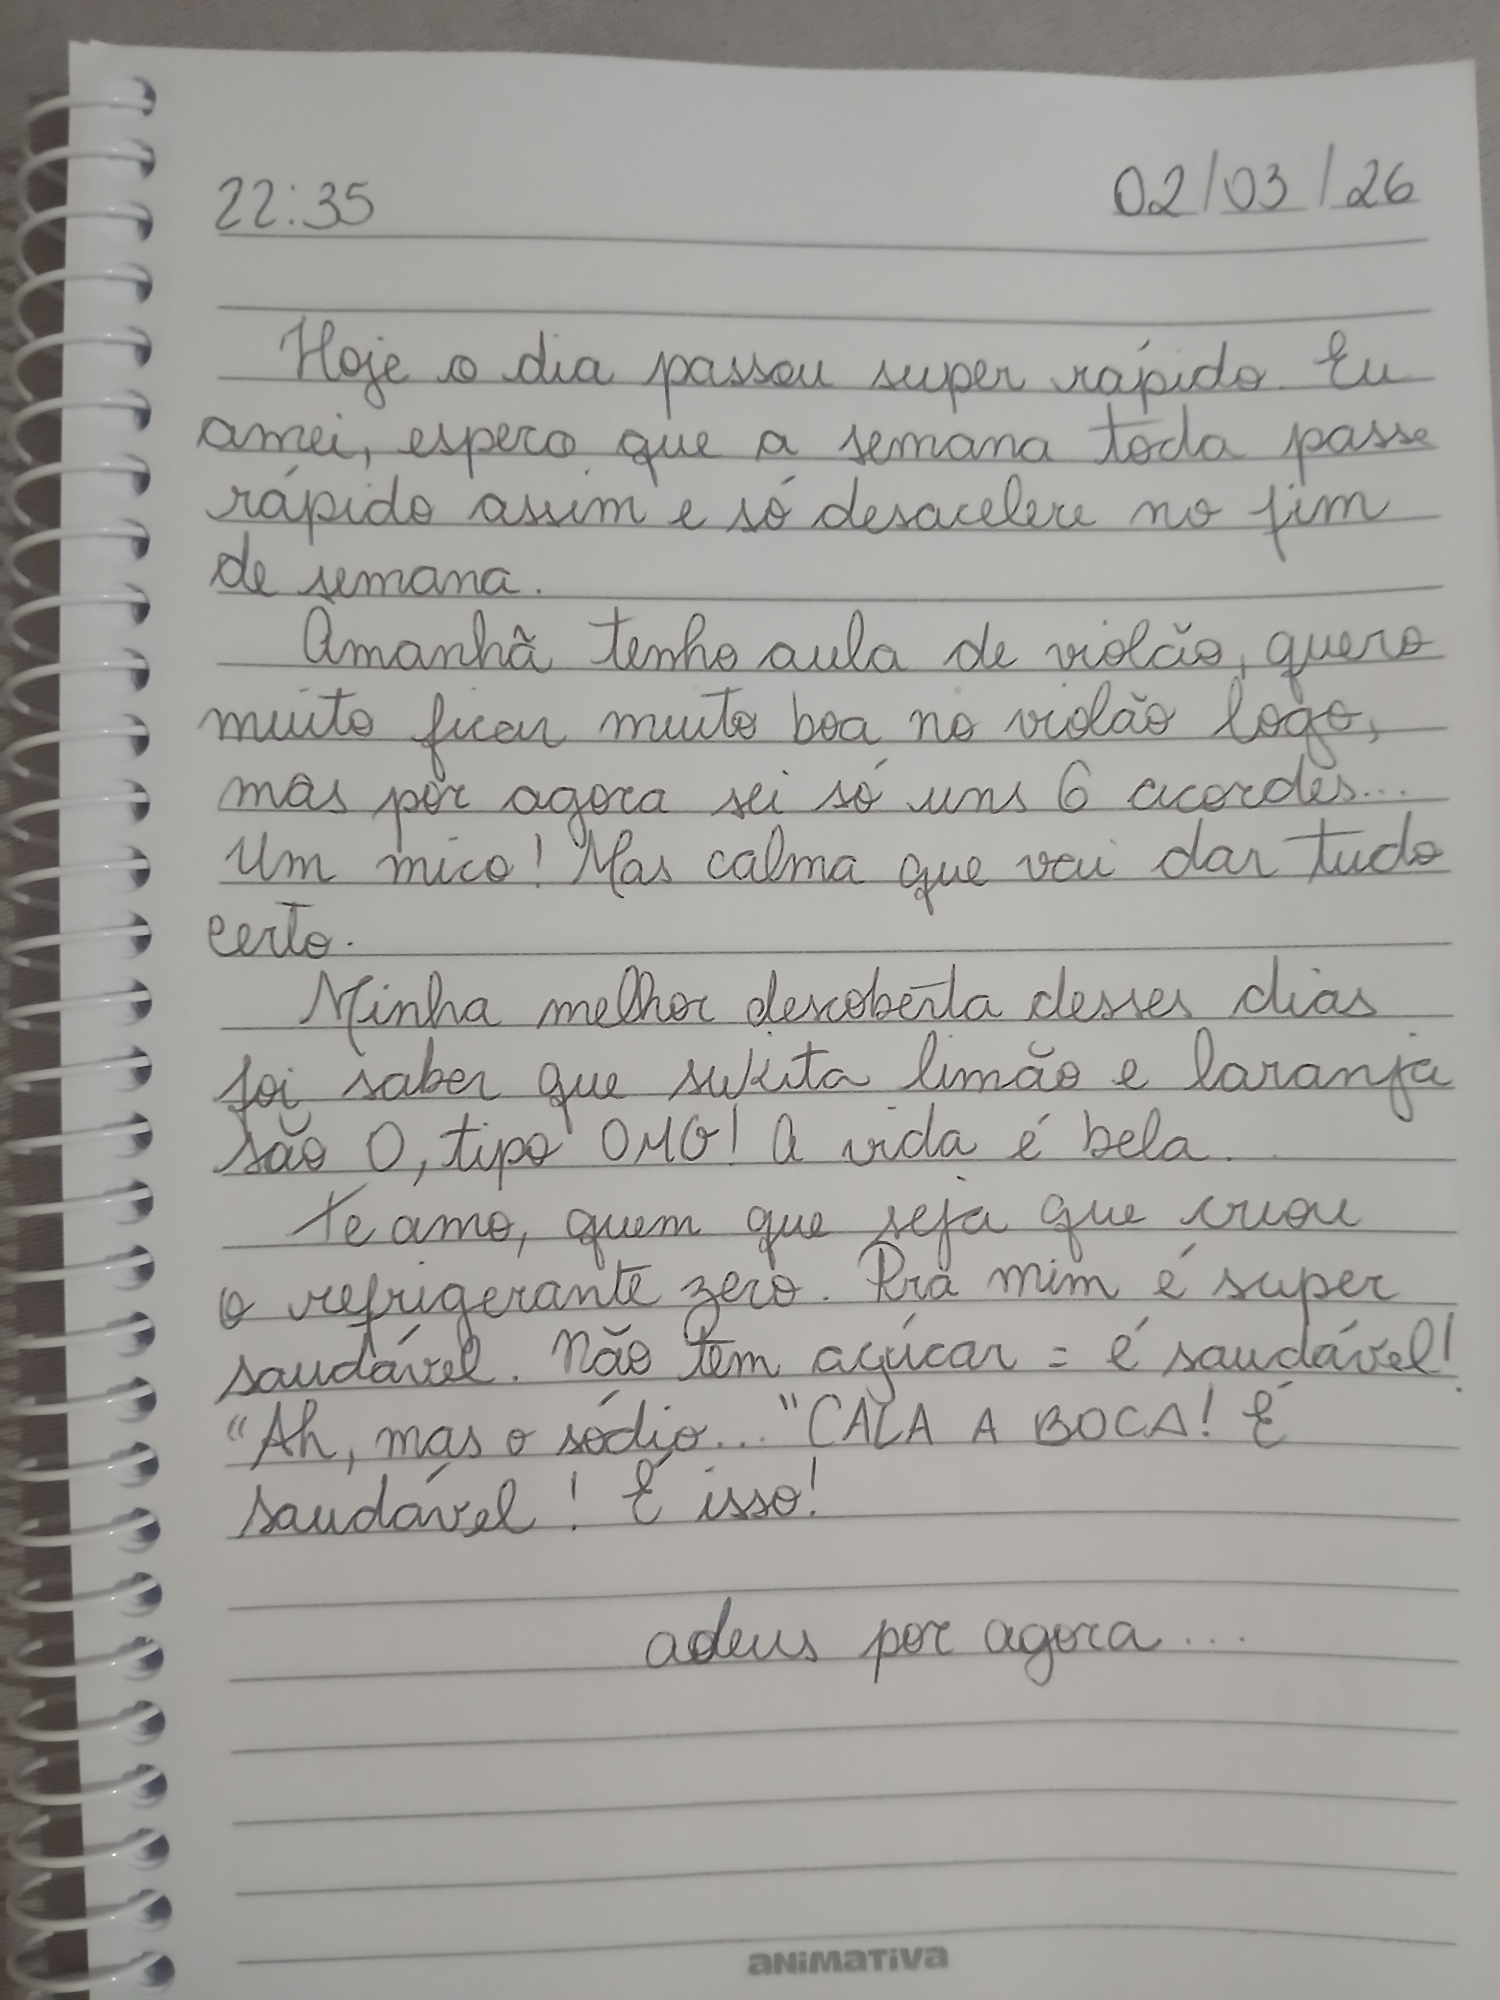 22:35 02/03/26
Hoje o dia passou super rápido. Eu
amei, espero que a semana toda passe
rápido assim e só desacelere no fim
de semana.
Amanhã tenho aula de violão, quero
muito ficar muito boa no violão logo,
mas por agora sei só uns 6 acordes...
Um mico! Mas calma que vai dar tudo
certo.
Minha melhor descoberta desses dias
foi saber que sukita limão e laranja
são 0, tipo OMG! A vida é bela.
Te amo, quem que seja que criou
o refrigerante zero. Pra mim é super
saudável. Não tem açúcar = é saudável!
"Ah, mas o sódio..." CALA A BOCA! É
saudável! É isso!
adeus por agora...
aNiMaTiVa